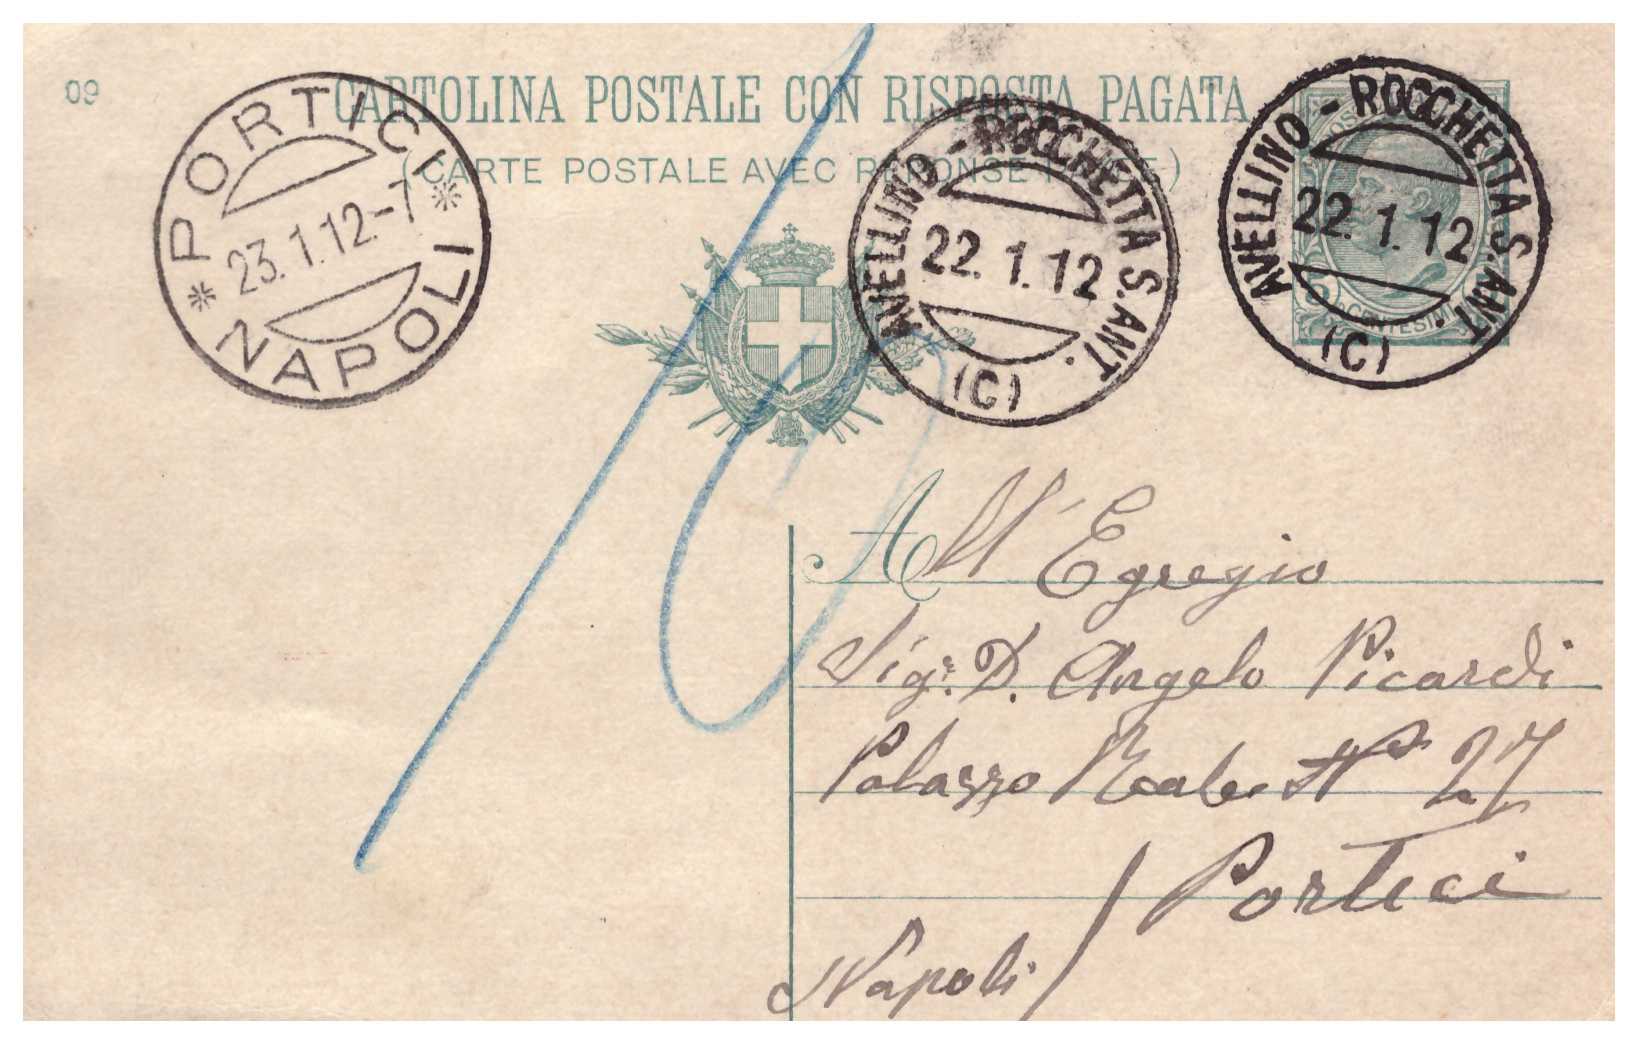 09
CARTOLINA POSTALE CON RISPOSTA PAGATA
(CARTE POSTALE AVEC RÉPONSE
PORTICI
23.1.12-7
NAPOLI
AVELLINO - ROCCHETTA S. ANT.
22.1.12
(C)
AVELLINO - ROCCHETTA S. ANT.
22.1.12
(C)
CENTESIMI
10
All'Egregio
Sigr. D. Angelo Picardi
Palazzo Reale N° 27
Portici
Napoli /